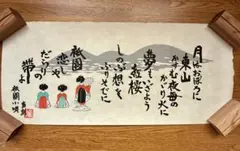 月はおぼろに
東山
かすむ夜毎の
かがり火に
夢もいざよう
紅桜
しのぶ想を
ふりそでに
祇園
恋しや
だらりの
帯よ
祇園小唄